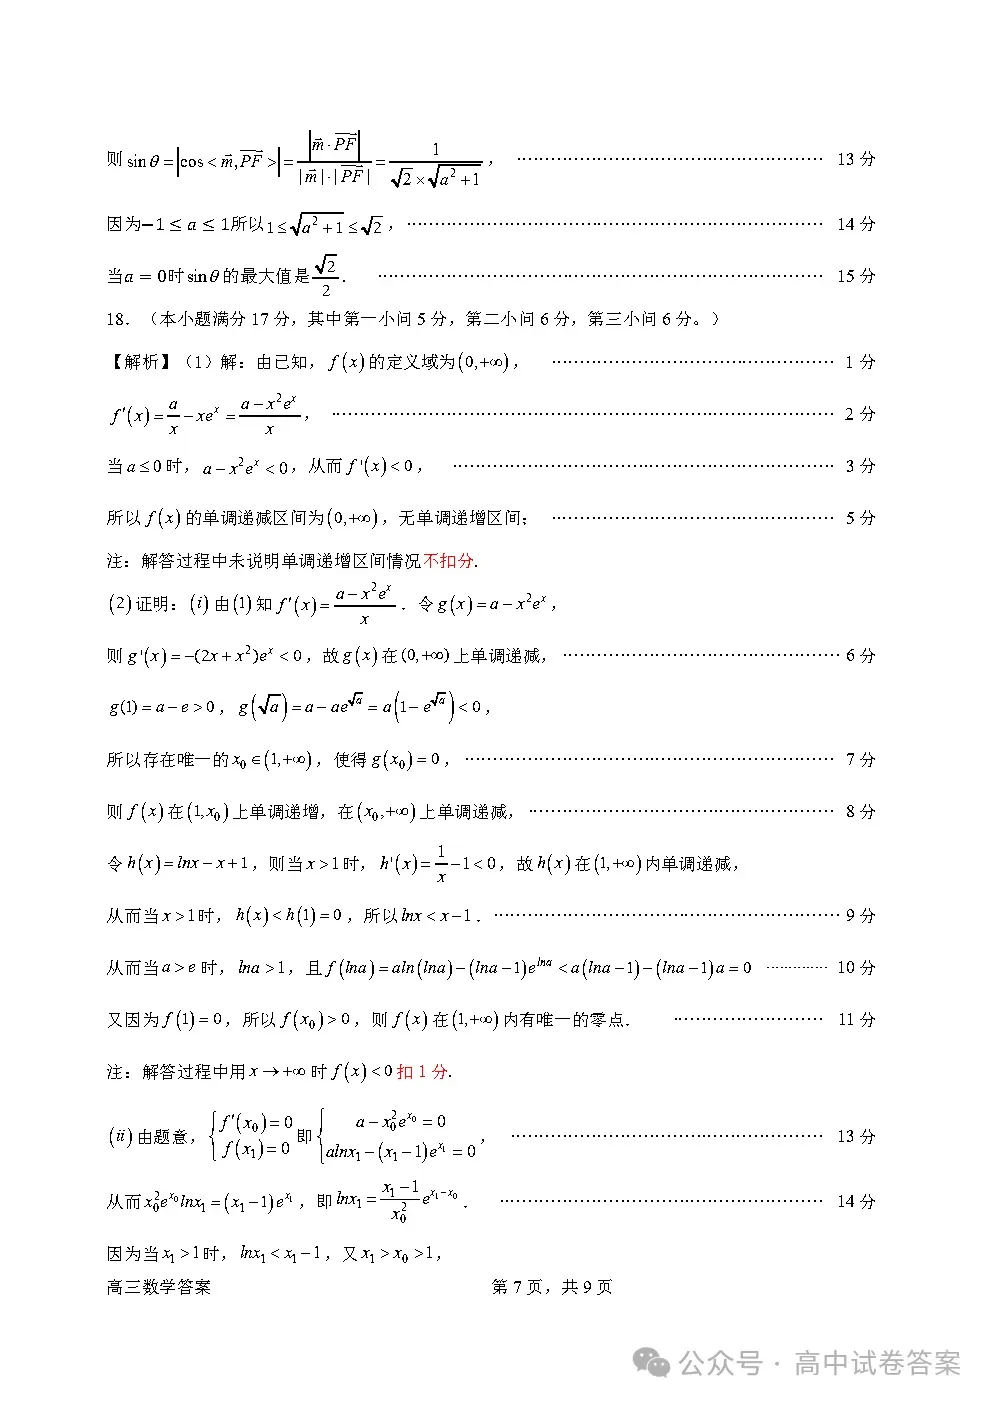 则 sinθ = |cos < m⃗, PF⃗ >| = |m⃗ · PF⃗| / (|m⃗| · |PF⃗|) = 1 / (√2 × √(a² + 1))， ………… 13 分
因为−1 ≤ a ≤ 1所以1 ≤ √(a² + 1) ≤ √2， ………… 14 分
当a = 0时 sinθ 的最大值是 √2/2． ………… 15 分
18．（本小题满分 17 分，其中第一小问 5 分，第二小问 6 分，第三小问 6 分。）
【解析】（1）解：由已知， f(x) 的定义域为(0,+∞)， ………… 1 分
f′(x) = a/x − xeˣ = (a − x²eˣ)/x， ………… 2 分
当 a ≤ 0 时， a − x²eˣ < 0，从而 f'(x) < 0， ………… 3 分
所以 f(x) 的单调递减区间为(0,+∞)，无单调递增区间； ………… 5 分
注：解答过程中未说明单调递增区间情况不扣分.
(2)证明：(i) 由(1)知 f′(x) = (a − x²eˣ)/x．令 g(x) = a − x²eˣ，
则 g'(x) = −(2x + x²)eˣ < 0，故 g(x) 在(0,+∞) 上单调递减， ………… 6 分
g(1) = a − e > 0， g(√a) = a − ae^(√a) = a(1 − e^(√a)) < 0，
所以存在唯一的 x₀ ∈ (1,+∞)，使得 g(x₀) = 0， ………… 7 分
则 f(x) 在(1,x₀) 上单调递增，在(x₀,+∞) 上单调递减， ………… 8 分
令 h(x) = lnx − x + 1，则当 x > 1 时， h'(x) = 1/x − 1 < 0，故 h(x) 在(1,+∞) 内单调递减，
从而当 x > 1 时， h(x) < h(1) = 0，所以 lnx < x − 1． ………… 9 分
从而当 a > e 时， lna > 1，且 f(lna) = aln(lna) − (lna − 1)e^(lna) < a(lna − 1) − (lna − 1)a = 0 ………… 10 分
又因为 f(1) = 0，所以 f(x₀) > 0，则 f(x) 在(1,+∞) 内有唯一的零点． ………… 11 分
注：解答过程中用 x → +∞ 时 f(x) < 0 扣 1 分.
(ii) 由题意，{f′(x₀) = 0, f(x₁) = 0 即 {a − x₀²e^(x₀) = 0, alnx₁ − (x₁ − 1)e^(x₁) = 0， ………… 13 分
从而 x₀²e^(x₀)lnx₁ = (x₁ − 1)e^(x₁)，即 lnx₁ = (x₁ − 1)/x₀² e^(x₁ − x₀)． ………… 14 分
因为当 x₁ > 1 时， lnx₁ < x₁ − 1，又 x₁ > x₀ > 1，
高三数学答案 第 7 页，共 9 页
公众号 · 高中试卷答案